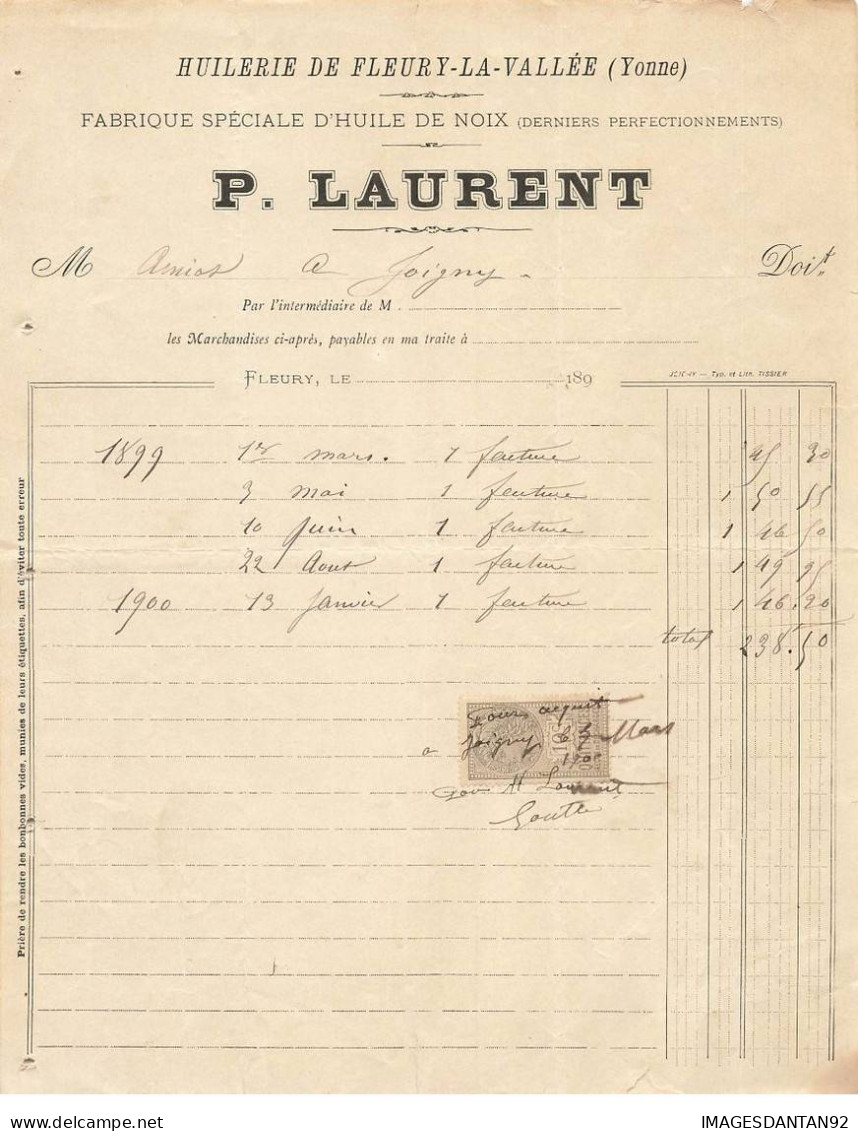 HUILERIE DE FLEURY-LA-VALLÉE (Yonne)
FABRIQUE SPÉCIALE D'HUILE DE NOIX (DERNIERS PERFECTIONNEMENTS)
P. LAURENT
M Amiot a Joigny Doit
Par l'intermédiaire de M.
les Marchandises ci-après, payables en ma traite à
FLEURY, LE 189
JOIGNY — Typ. et Lith. TISSIER
1899 1er mars. 1 facture 45 30
3 mai 1 facture 1 50 55
10 Juin 1 facture 1 46 50
22 Aout 1 facture 1 49 95
1900 13 Janvier 1 facture 1 46.20
total 238.50
Pour acquit
a Joigny, le 3 Mars
1900
Pour M Laurent
Prière de rendre les bonbonnes vides, munies de leurs étiquettes, afin d'éviter toute erreur
IMAGESDANTAN92